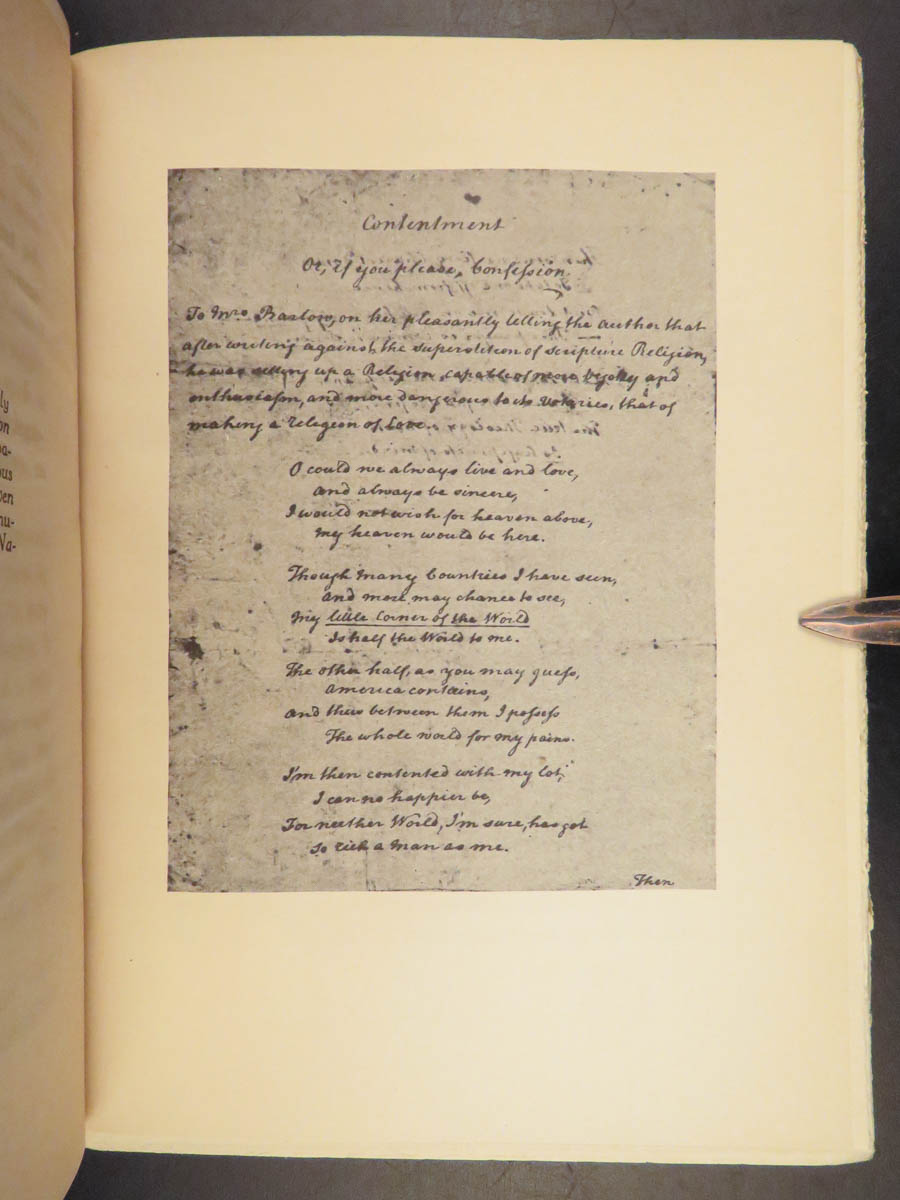 ly
on
ba-
ous
ven
nu-
Na-
Contentment
Or, if you please, Confession.
To Mrs. Barlow, on her pleasantly telling the author that
after writing against the superstition of scripture Religion,
he was setting up a Religion, capable of more bigotry and
enthusiasm, and more dangerous to its Votaries, that of
making a religion of Love.
O could we always live and love,
and always be sincere,
I would not wish for heaven above,
My heaven would be here.
Though many Countries I have seen,
and more may chance to see,
My little Corner of the World
Is half the World to me.
The other half, as you may guess,
America contains,
and thus between them I possess
The whole world for my pains.
I'm then contented with my lot,
I can no happier be,
For neither World, I'm sure, has got
So rich a Man as me.
Then